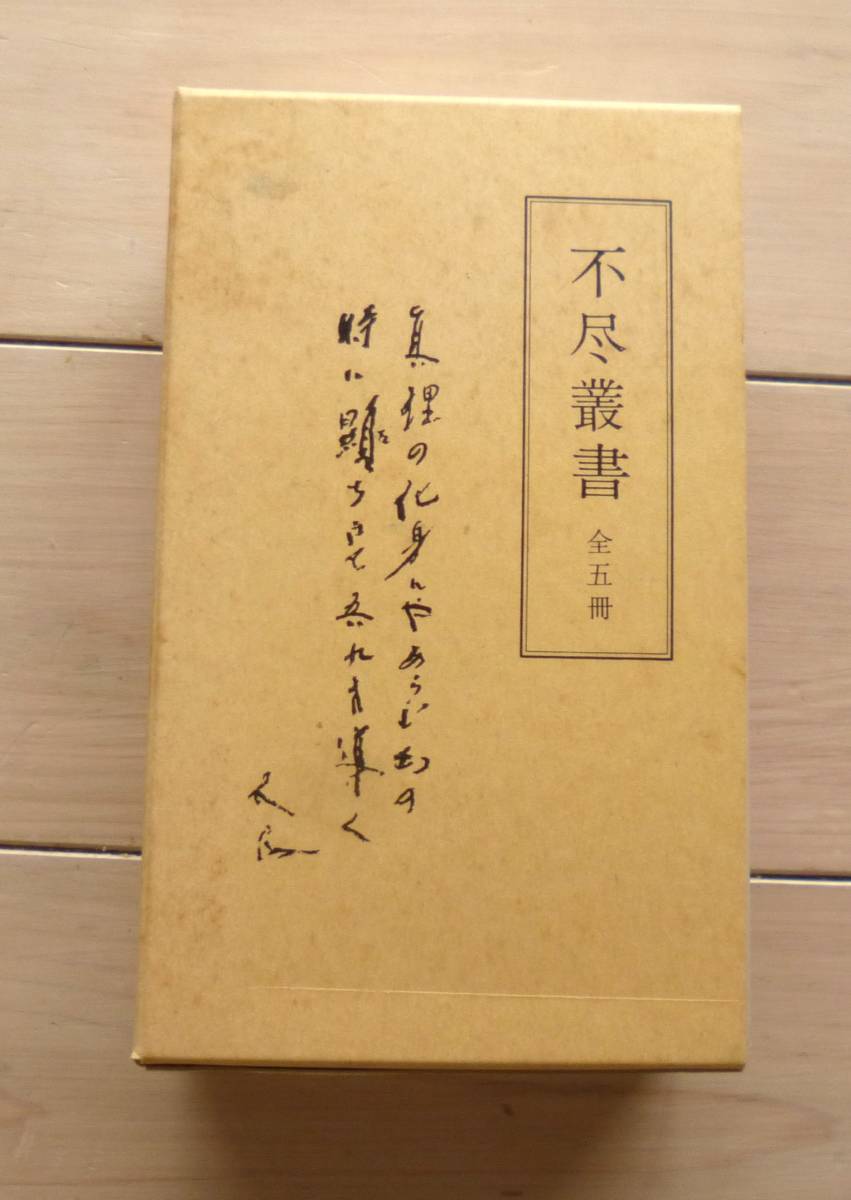 不尽叢書 全五冊
真理の化身にやあらむ幻の
時に顕ち来て吾れを導く